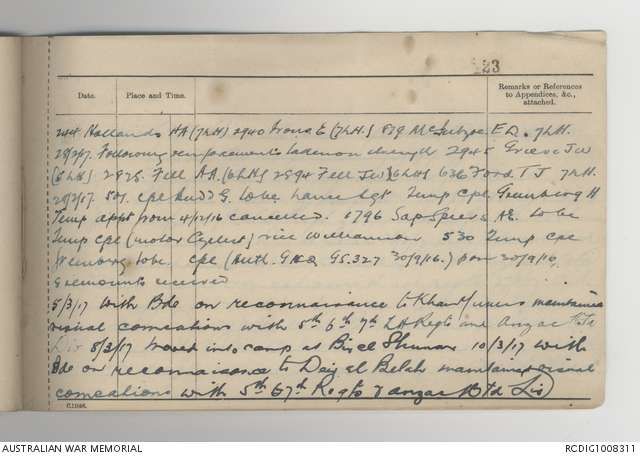 23
Date. Place and Time. Remarks or References to Appendices, &c., attached.
Hollands HA (7LH) 2940 E (7LH) 879 E.D. 7LH.
Following reinforcements taken on strength 2945 Grieve JW
(6LH) 2925 Fell AA. (6LH) 2894 Fell JW (6LH) 636 Ford. T J 7LH.
28/2/17. 501. Cpl Budd G. to be Lance Sgt Temp Cpl H
Temp appt from 4/12/16 cancelled. 1796 Sap Spiers AE. to be
Temp Cpl (Motor Cyclist) vice Williamson 530 Temp Cpl
to be. Cpl (Auth. GHQ GS.327 30/9/16.) from 30/9/16.
9 remounts received
5/3/17 With Bde on reconnaissance to Khan Yunus maintained
visual comcations with 5th 6th 7th LH Regts and Anzac Mtd
Div 8/3/17 moved into camp at Bir el 10/3/17 with
Bde on reconnaissance to Dair el Belah maintained visual
comcations with 5th 6 7th Regts & Anzac Mtd Div
AUSTRALIAN WAR MEMORIAL RCDIG1008311